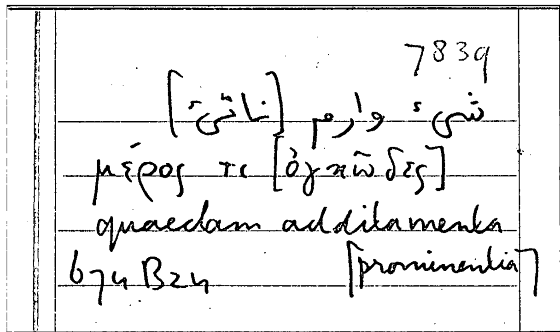 7839
شيء وارم [ناتئ]
μέρος τι [ὀγκῶδες]
quaedam additamenta
674 B24 [prominentia]